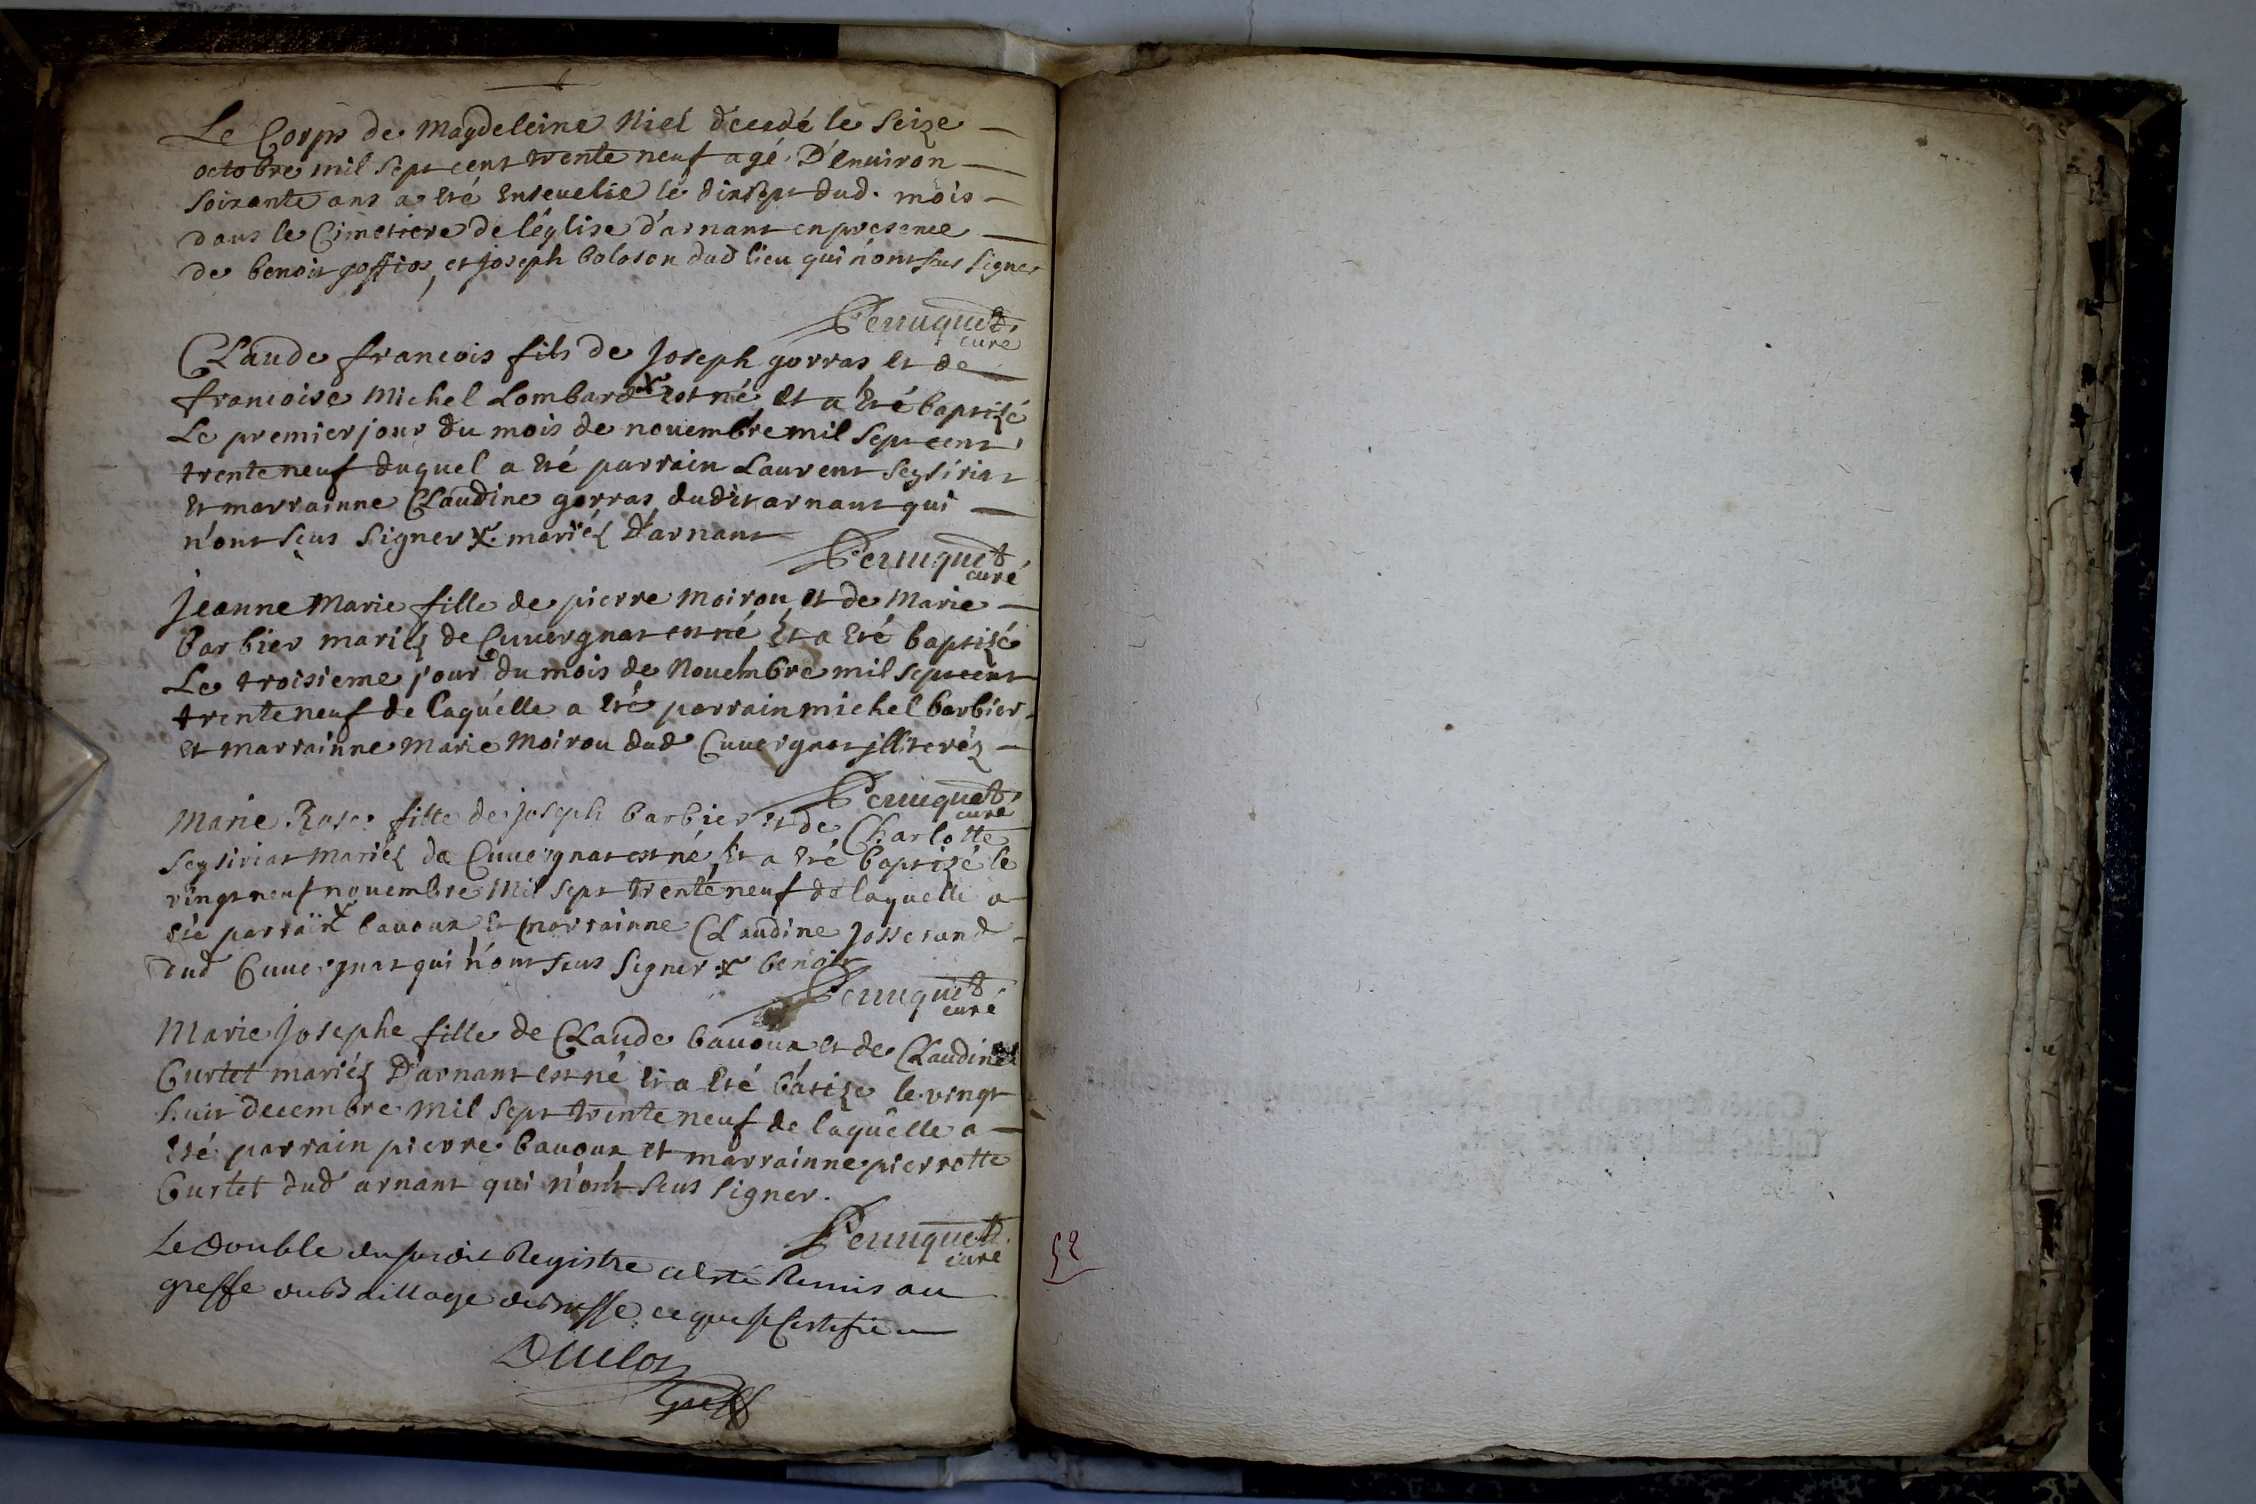 Le Corps de Magdeleine Niel décédé le seize
octobre mil sept cent trente neuf agé D'environ
soixante ans a eté ensevelie le dixsept dud. mois
dans le Cimetiere de l'église d'arnant en presence
de benoit goffios et joseph boloson dud lieu qui n'ont sus signer
Perruquet
curé
Claude francois fils de Joseph gorras et de
francoise Michel Lombard x est né et a été baptizé
Le premier jour du mois de novembre mil sept cent
trente neuf duquel a eté parrain Laurent Seysiriat
et marrainne Claudine gorras dudit arnant qui
n'ont sçus signer x mariéz D'arnant
Perruquet
curé
Jeanne Marie fille de pierre Moirou et de Marie
barbier mariéz de Cuvergnat est né et a eté baptizé
Le troisieme jour du mois de Novembre mil sept cent
trente neuf de laquélle a eté parrain michel barbier
et marrainne Marie Moirou dud Cuvergnat illiteréz
Perruquet
curé
Marie Rose fille de joseph barbier et de Charlotte
Seysiriat mariéz de Cuvergnat est né et a eté baptizé le
vingt neuf novembre Mil sept trente neuf de laquelle a
eté parrain x bavoux et marrainne Claudine Josserand
dud Cuvergnat qui n'ont sçus signer x benoit
Perruquet
curé
Marie Josephe fille de Claude bavoux et de Claudine
Curtet mariéz D'arnant est né et a eté batizé le vingt
huit decembre Mil sept trente neuf de laquélle a
eté parrain pierre bavoux et marrainne pierrotte
Curtet dud arnant qui n'ont sçus signer.
Perruquet
curé
Le Double du susdit Registre a esté Remis au
greffe du Baillage de Bresse ce que je Certifie
Duclos
Greff
52